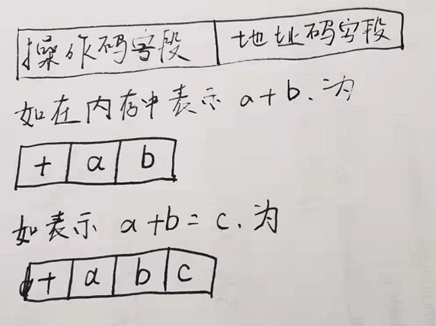 操作码字段 地址码字段
如在内存中表示 a+b.为
+ a b
如表示 a+b=c.为
+ a b c